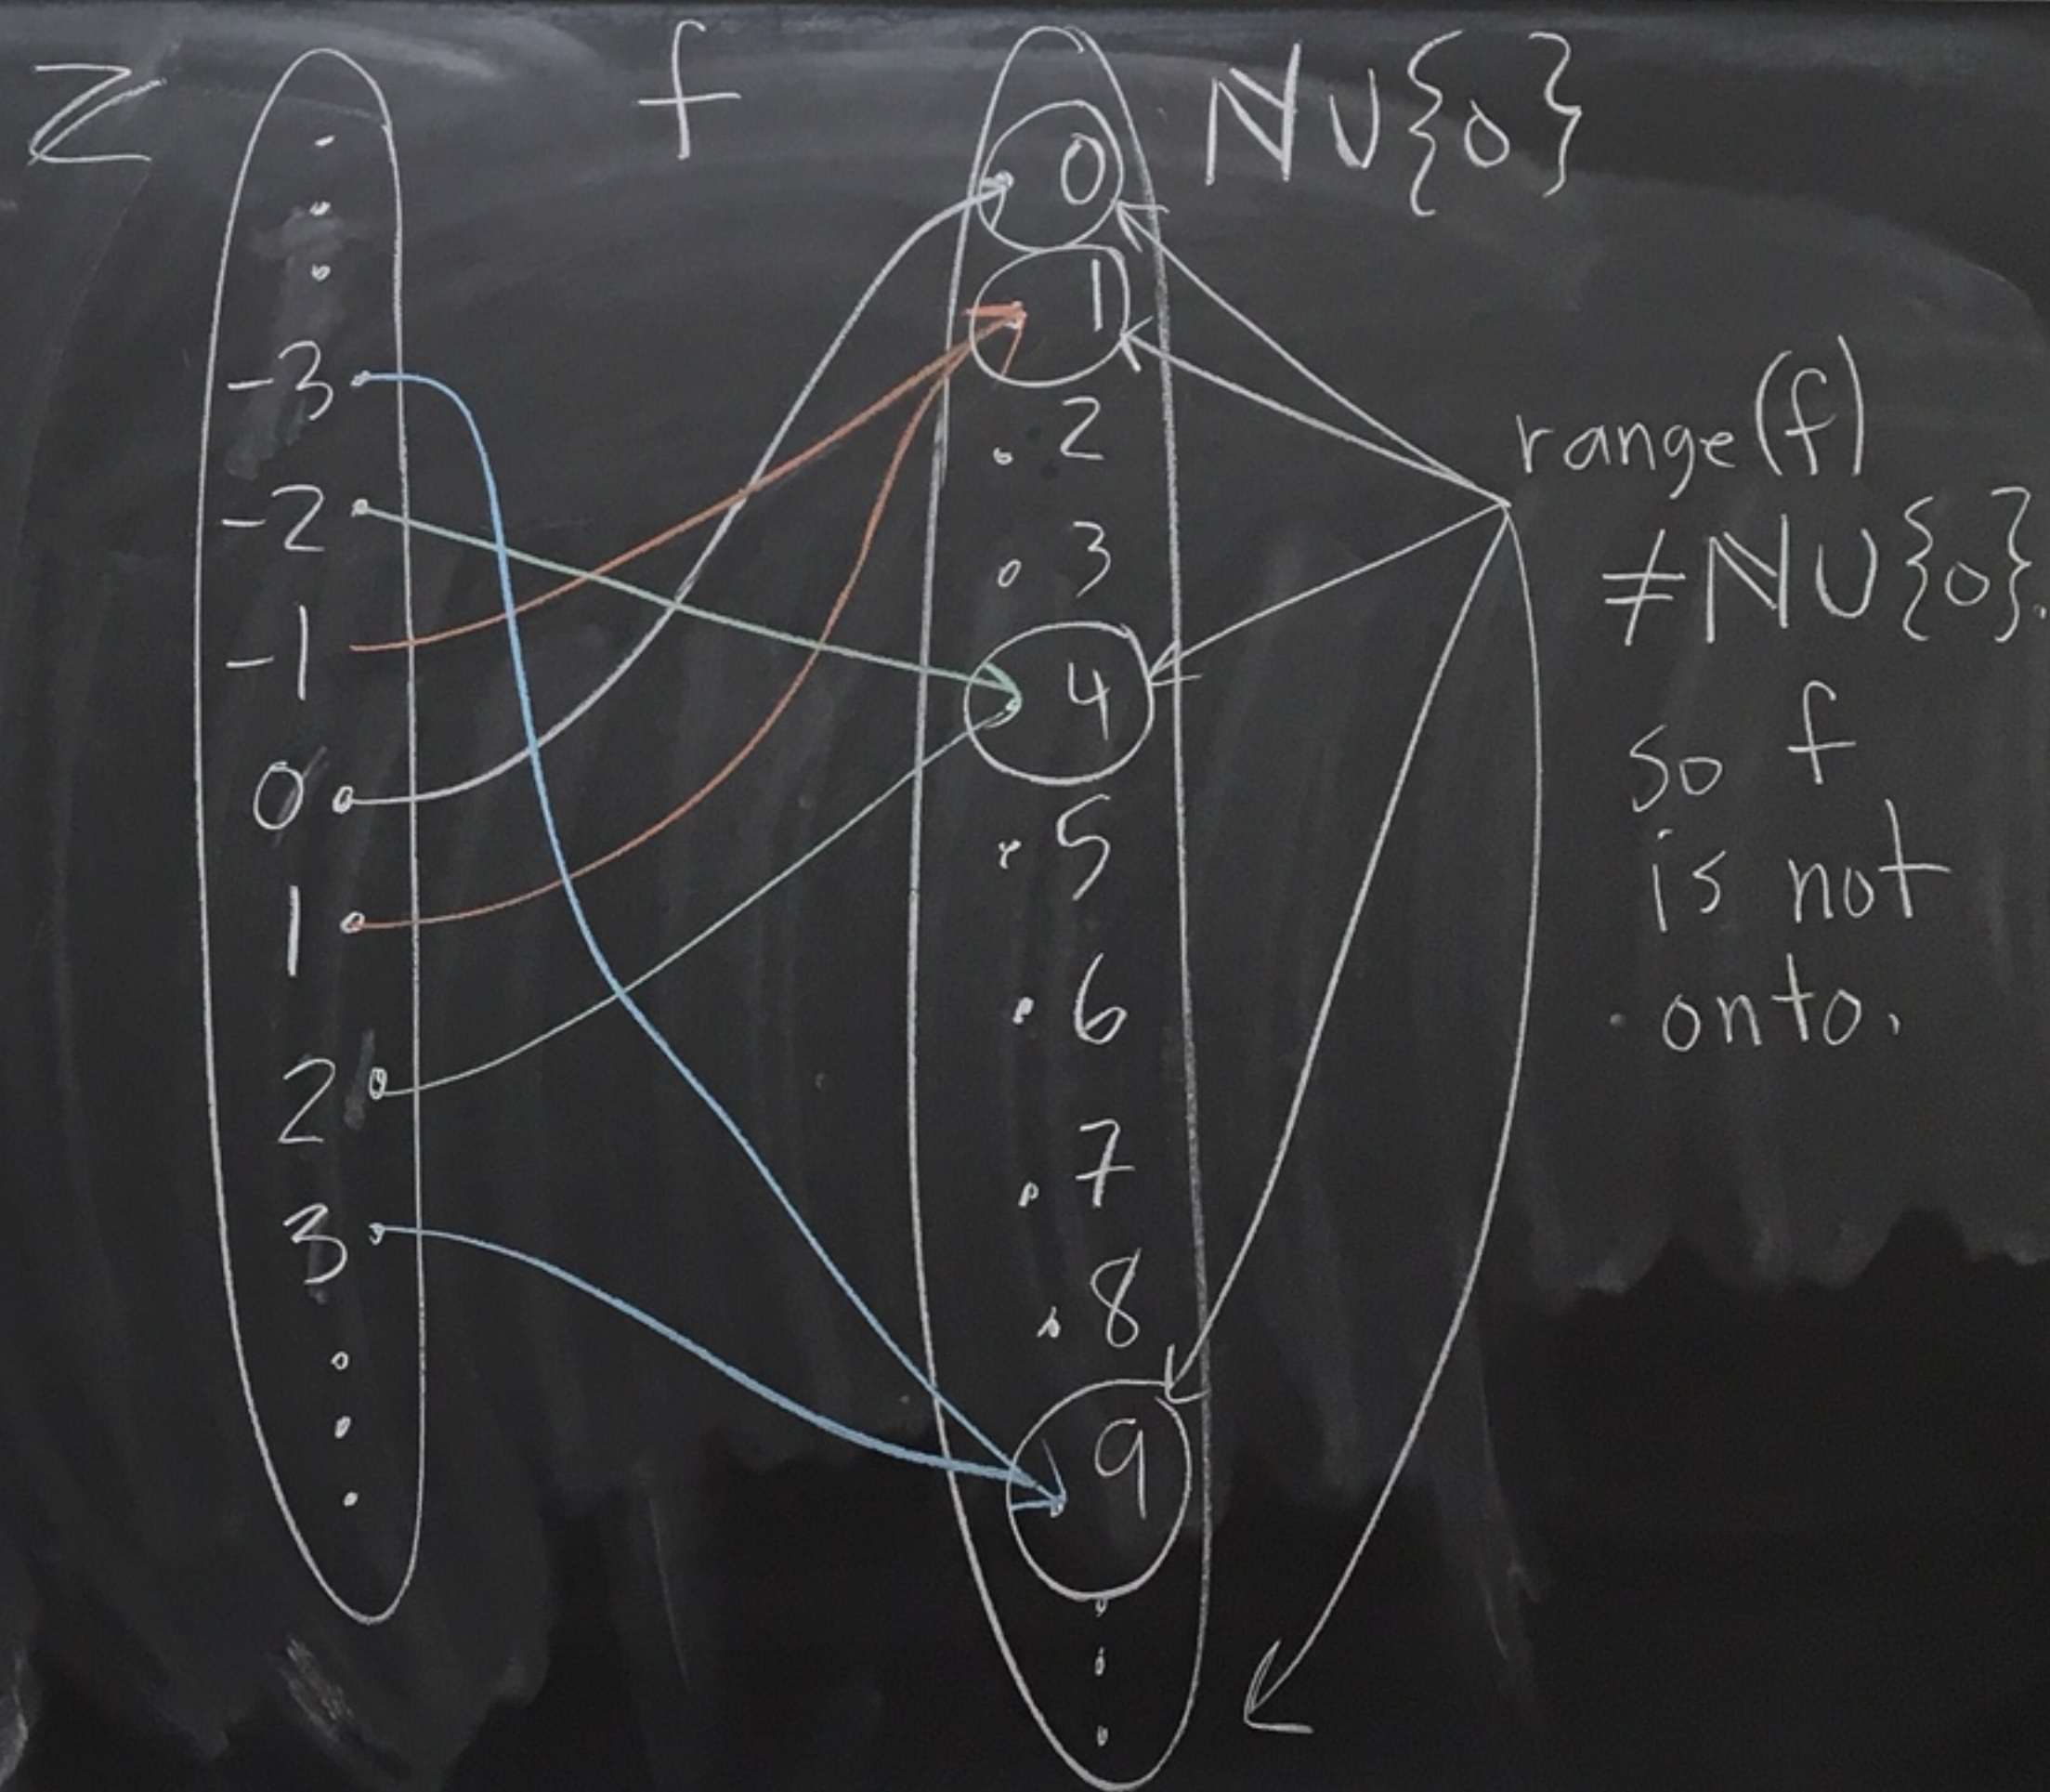 ℤ
f
ℕ∪{0}
-3
-2
-1
0
1
2
3
0
1
2
3
4
5
6
7
8
9
range(f)
≠ℕ∪{0}.
so f
is not
onto.